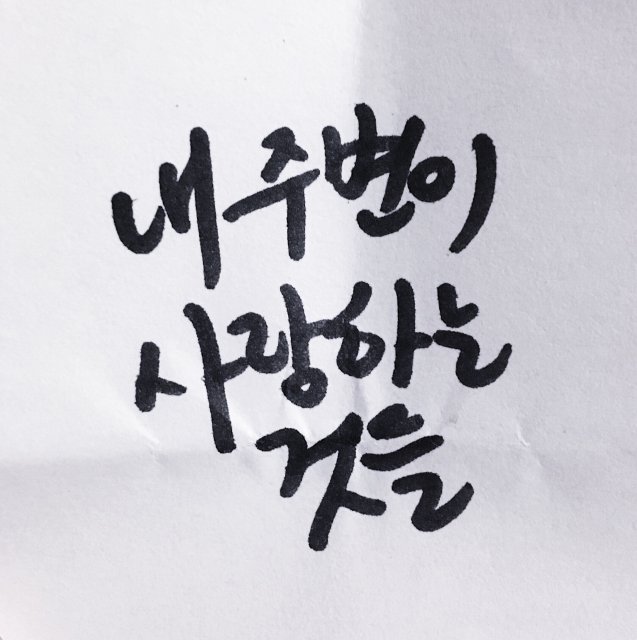 내 주변이
사랑하는
것들